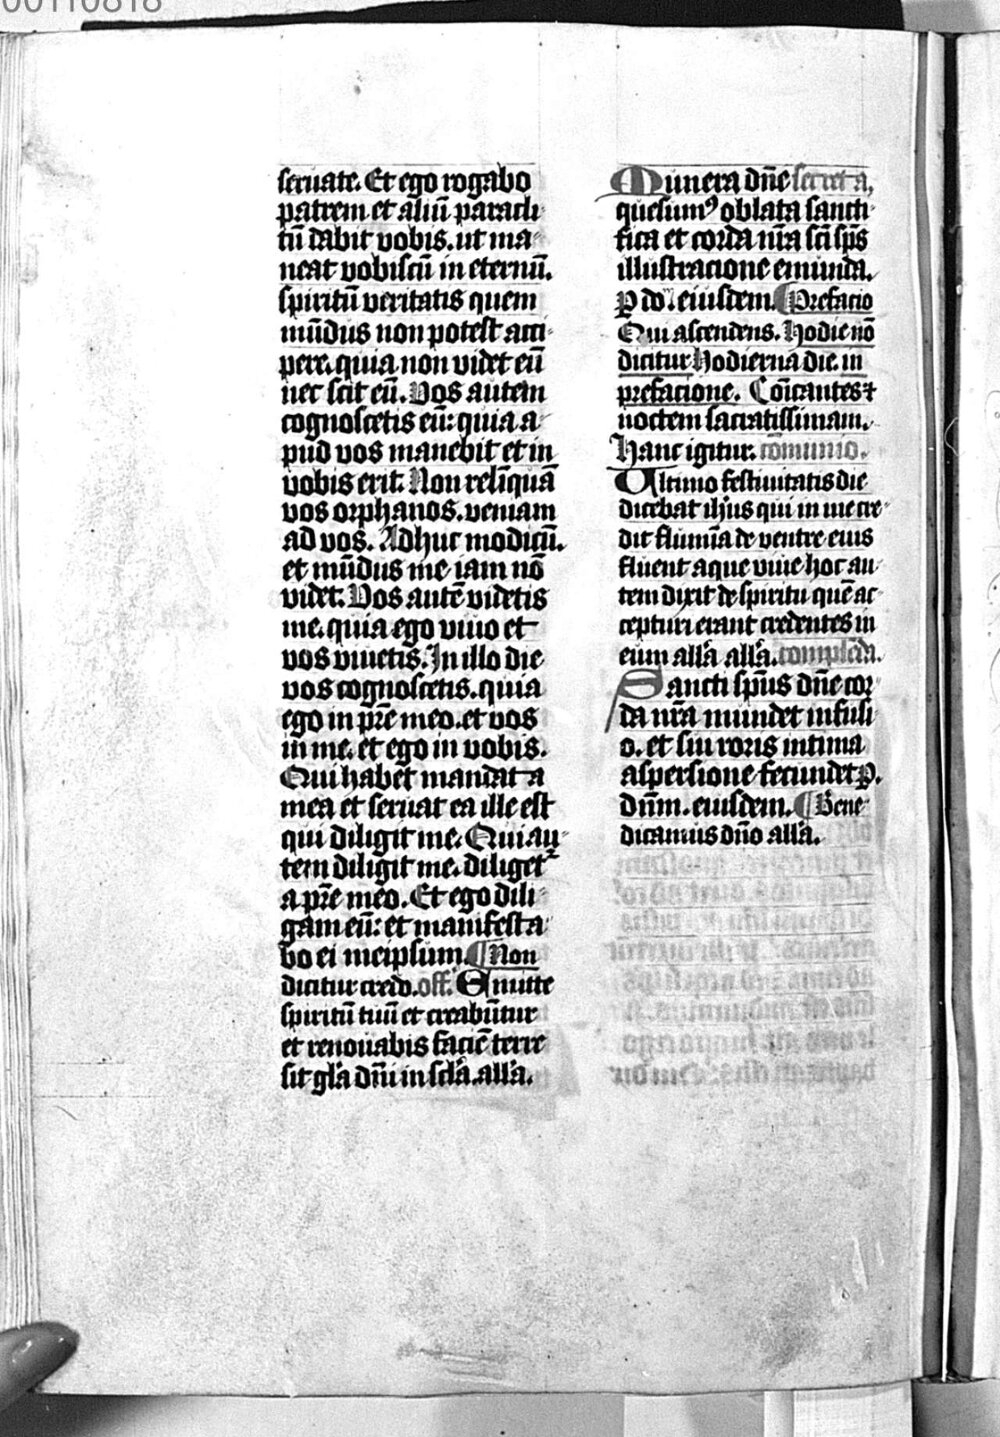 00110818
seruate. Et ego rogabo
patrem et aliū paracli
tū dabit vobis. ut ma
neat vobiscū in eternū.
spiritū veritatis quem
mūdus non potest acci
pere. quia non videt eū
nec scit eū. Vos autem
cognoscetis eū: quia a
pud vos manebit et in
vobis erit. Non relīquā
vos orphanos. veniam
ad vos. Adhuc modicū.
et mūdus me iam nō
videt. Vos autē videtis
me. quia ego viuo et
vos viuetis. In illo die
vos cognoscetis. quia
ego in pr̄e meo. et vos
in me. et ego in vobis.
Qui habet mandata
mea et seruat ea ille est
qui diligit me. Qui au
tem diligit me. diliget᷑
a pr̄e meo. Et ego dili
gam eū: et manifesta
bo ei meipsum. ¶ Non
dicitur credo. off. Emitte
spiritū tuū et creabūtur
et renouabis faciē terre
sit gl̄a dn̄i in scl̄a. all̄a.
Munera dn̄e secreta,
quesumꝰ oblata sancti
fica et corda nr̄a sc̄i sp̄s
illustracione emunda.
P do. eiusdem. ¶ Prefacio
Qui ascendens. Hodie nō
dicitur Hodierna die. in
prefacione. Cōicantes ⁊
noctem sacratissimam.
Hanc igitur. cōmunio.
Ultimo festiuitatis die
dicebat ih̄us qui in me cre
dit flumīa de ventre eius
fluent aque viue hoc au
tem dixit de spiritu quē ac
cepturi erant credentes in
eum all̄a all̄a. complēda.
Sancti sp̄us dn̄e cor
da nr̄a mundet infusi
o. et sui roris intima
aspersione fecundet P.
dn̄m. eiusdem. ¶ Bene
dicamus dn̄o all̄a.